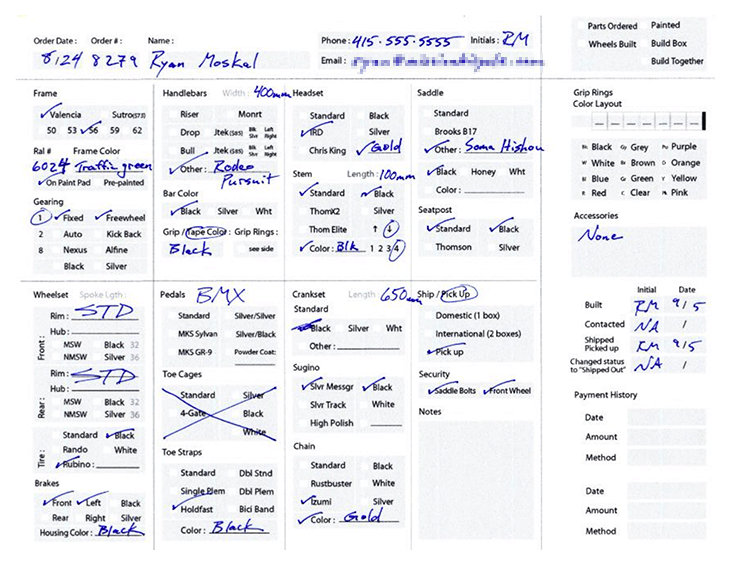 Order Date : Order # : Name : Phone : 415.555.5555 Initials : RM
8124 8279 Ryan Moskal Email :
Parts Ordered Painted
Wheels Built Build Box
Build Together
Frame
Valencia Sutro(57.5)
50 53 56 59 62
Ral # Frame Color
6024 Traffic green
On Paint Pad Pre-painted
Gearing
1 Fixed Freewheel
2 Auto Kick Back
8 Nexus Alfine
Black Silver
Handlebars Width : 400mm
Riser Monrt
Drop Jtek (585) Blk Slvr Left Right
Bull Jtek (585) Blk Slvr Left Right
Other : Rodeo
Pursuit
Bar Color
Black Silver Wht
Grip / Tape Color : Grip Rings :
Black see side
Headset
Standard Black
IRD Silver
Chris King Gold
Stem Length : 100mm
Standard Black
ThomX2 Silver
Thom Elite ↑ ↓
Color : Blk 1 2 3 4
Saddle
Standard
Brooks B17
Other : Soma Hishou
Black Honey Wht
Color :
Seatpost
Standard Black
Thomson Silver
Grip Rings
Color Layout
Bk Black Gy Grey Pu Purple
W White Br Brown O Orange
Bl Blue G Green Y Yellow
R Red C Clear Pk Pink
Accessories
None
Wheelset Spoke Lgth :
Front :
Rim : STD
Hub :
MSW Black 32
NMSW Silver 36
Rear :
Rim : STD
Hub :
MSW Black 32
NMSW Silver 36
Tire :
Standard Black
Rando White
Rubino :
Brakes
Front Left Black
Rear Right Silver
Housing Color : Black
Pedals BMX
Standard Silver/Silver
MKS Sylvan Silver/Black
MKS GR-9 Powder Coat:
Toe Cages
Standard Silver
4-Gate Black
White
Toe Straps
Standard Dbl Stnd
Single Plem Dbl Plem
Holdfast Bici Band
Color : Black
Crankset Length 650mm
Standard
Black Silver Wht
Other :
Sugino
Slvr Messgr Black
Slvr Track White
High Polish
Chain
Standard Black
Rustbuster White
Izumi Silver
Color : Gold
Ship / Pick Up
Domestic (1 box)
International (2 boxes)
Pick up
Security
Saddle Bolts Front Wheel
Notes
Initial Date
Built RM 9/5
Contacted NA /
Shipped
Picked up RM 9/5
Changed status
to "Shipped Out" NA /
Payment History
Date
Amount
Method
Date
Amount
Method